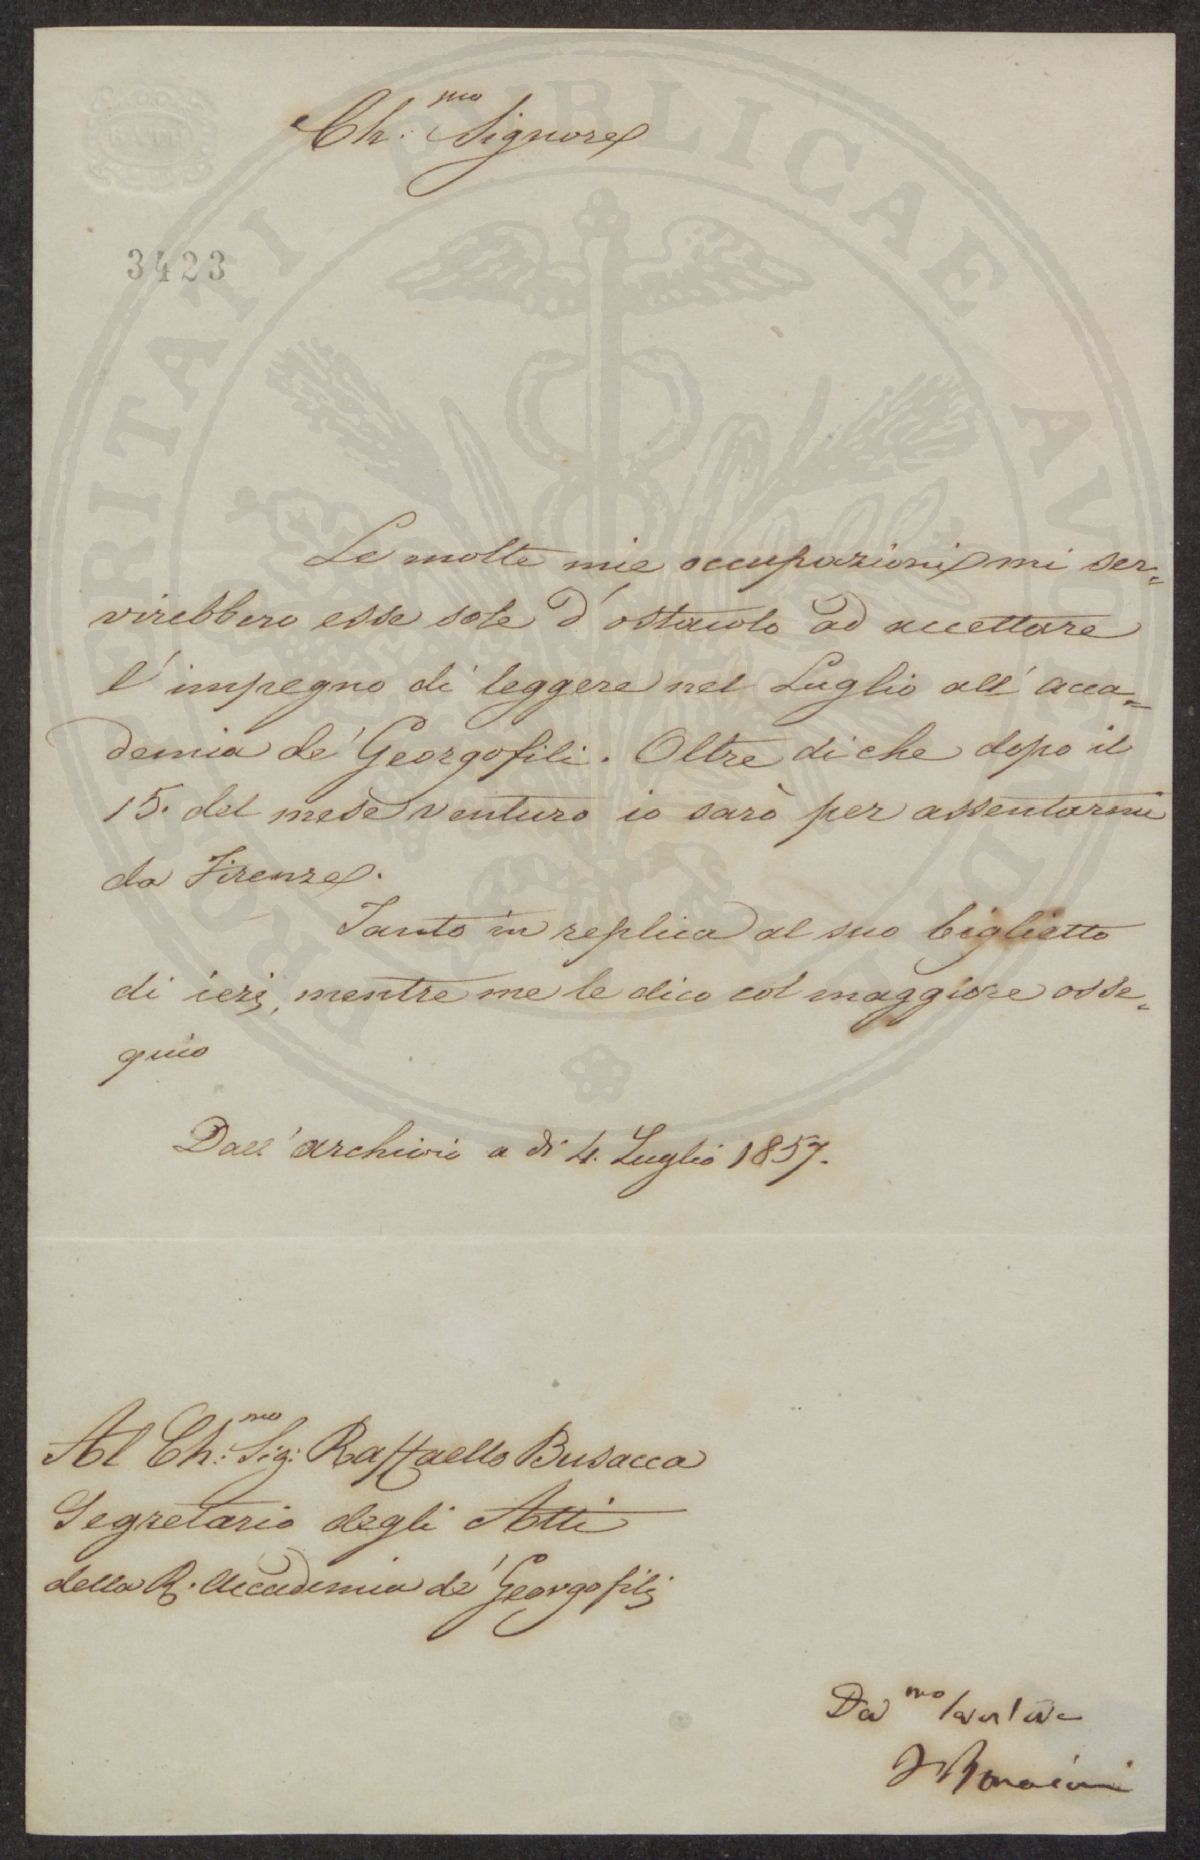 Ch:mo Signore
3423
Le molte mie occupazioni mi ser=
virebbero esse sole d'ostacolo ad accettare
l'impegno di leggere nel Luglio all'acca=
demia de' Georgofili. Oltre di che dopo il
15. del mese venturo io sarò per assentarmi
da Firenze.
Tanto in replica al suo biglietto
di ieri, mentre me le dico col maggiore osse=
quio
Dall'archivio a dì 4. Luglio 1857.
Al Ch:mo Sig: Raffaello Busacca
Segretario degli Atti
della R. Accademia de' Georgofili
PROSPERITATI PUBLICAE AVGENDAE